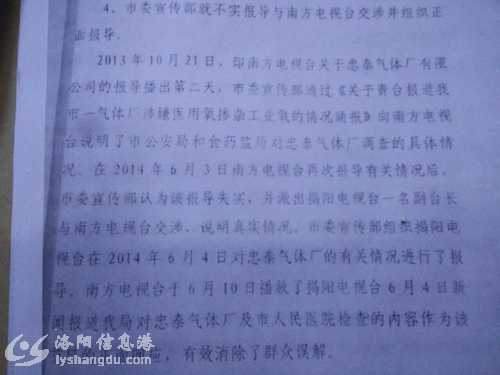 4、市委宣传部就不实报导与南方电视台交涉并组织正
面报导。
2013年10月21日，即南方电视台关于忠泰气体厂有限
公司的报导播出第二天，市委宣传部通过《关于贵台报道我
市一气体厂涉嫌医用氧掺杂工业氧的情况通报》向南方电视
台说明了市公安局和食药监局对忠泰气体厂调查的具体情
况。在2014年6月3日南方电视台再次报导有关情况后，
市委宣传部认为该报导失实，并派出揭阳电视台一名副台长
与南方电视台交涉，说明真实情况。市委宣传部组织揭阳电
视台在2014年6月4日对忠泰气体厂的有关情况进行了报
导。南方电视台于6月10日播放了揭阳电视台6月4日新
闻报道我局对忠泰气体厂及市人民医院检查的内容作为该
应，有效消除了群众误解。
洛阳信息港
lyshangdu.com